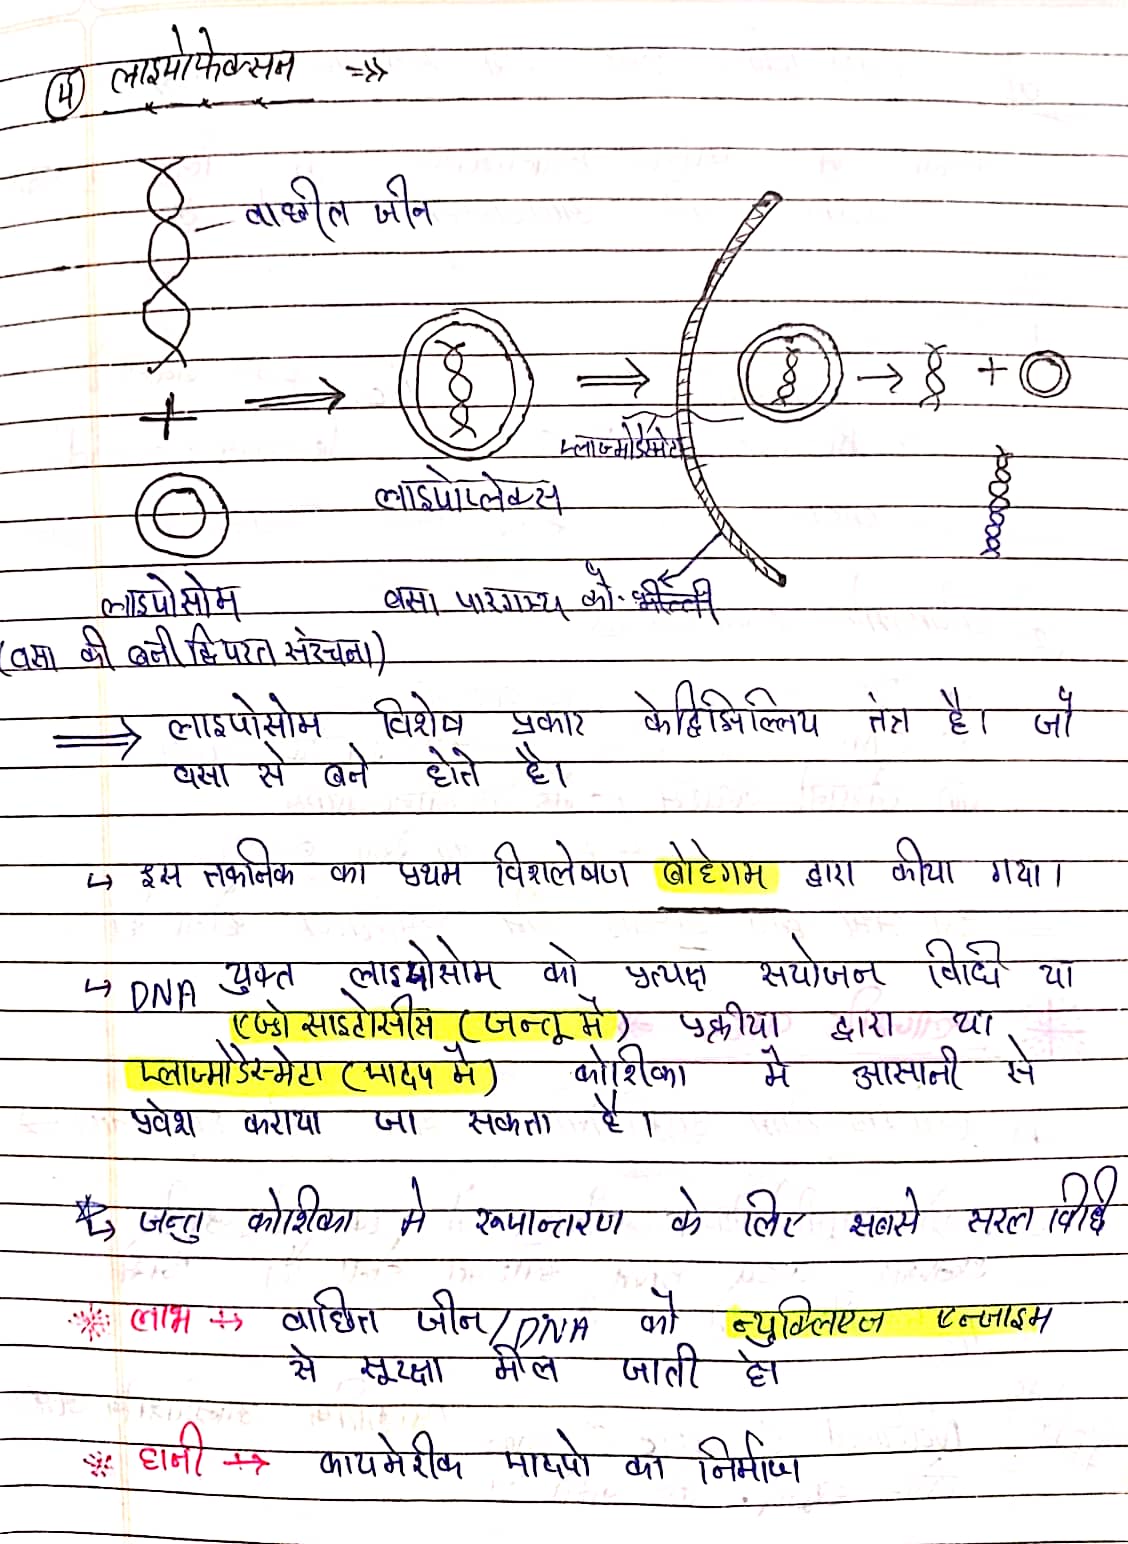 (4) लाइपोफेक्सन ⇒»
वाछीत जीन
प्लाज्मोडेस्मेटा
लाइपोप्लेक्स
लाइपोसोम
वसा पारगम्य को. भील्ली
(वसा की बनी द्विपरत संरचना)
⇒ लाइपोसोम विशेष प्रकार के द्विझिल्लिय तंत्र है। जो
वसा से बने होते है।
↳ इस तकनिक का प्रथम विशलेषण बोहेगम द्वारा कीया गया।
↳ DNA युक्त लाइपोसोम को प्रत्यक्ष सयोजन विधि या
एण्डोसाइटोसीस (जन्तू में) प्रक्रीया द्वारा या
प्लाज्मोडेस्मेटा (पादप में) कोशिका में आसानी से
प्रवेश कराया जा सकता है।
↳ जन्तु कोशिका मे रूपान्तरण के लिए सबसे सरल विधि
लाभ → वाछित जीन/DNA को न्युक्लिएज एन्जाइम
से सूरक्षा मील जाती है।
हानी → कायमेरीक पादपो का निर्माण